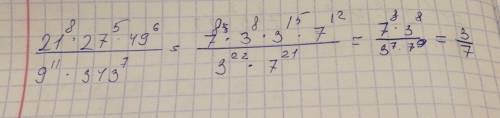 21⁸·27⁵·49⁶ / 9¹¹·343⁷ = 7⁸·3⁸·3¹⁵·7¹² / 3²²·7²¹ = 7⁸·3⁸ / 3⁷·7⁹ = 3/7